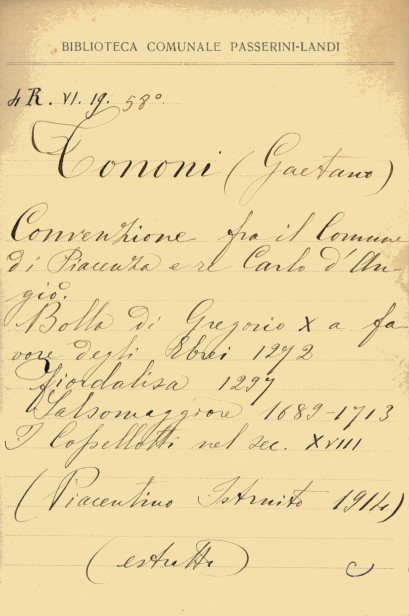 BIBLIOTECA COMUNALE PASSERINI-LANDI
4 R. VI. 19. 58°
Tononi (Gaetano)
Convenzione fra il Comune
di Piacenza e re Carlo d'An-
giò.
Bolla di Gregorio X a fa
vore degli Ebrei 1272
Fiordalisa 1297
Salsomaggiore 1689-1713
I Copellotti nel sec. XVIII
(Piacentino Istruito 1914)
(estratto)